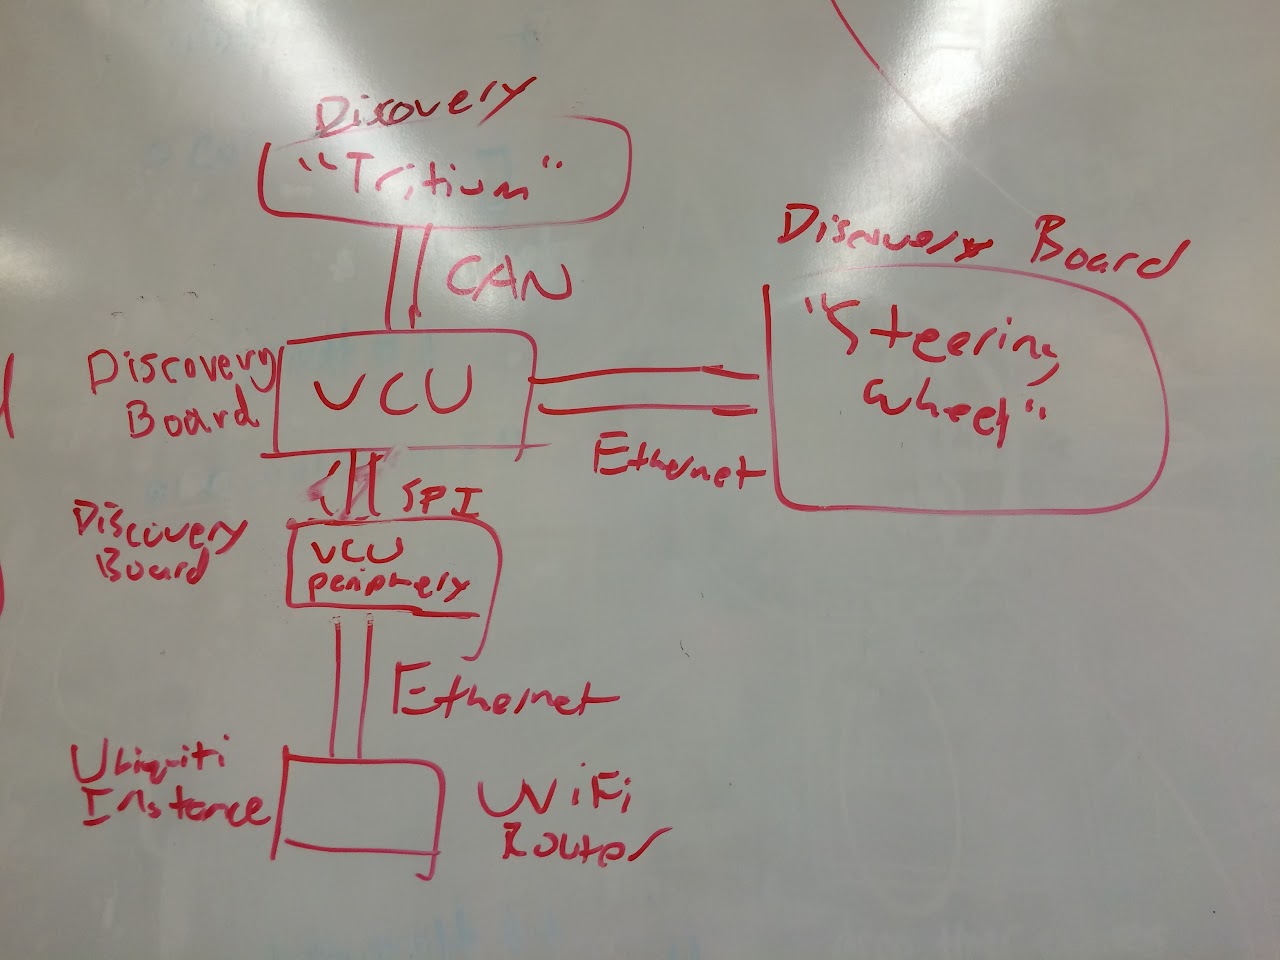 Discovery
"Tritium"
CAN
Discovery Board
"Steering
Wheel"
Discovery
Board
VCU
Ethernet
SPI
Discovery
Board
VCU
periphery
Ethernet
Ubiquiti
Instance
WiFi
Router